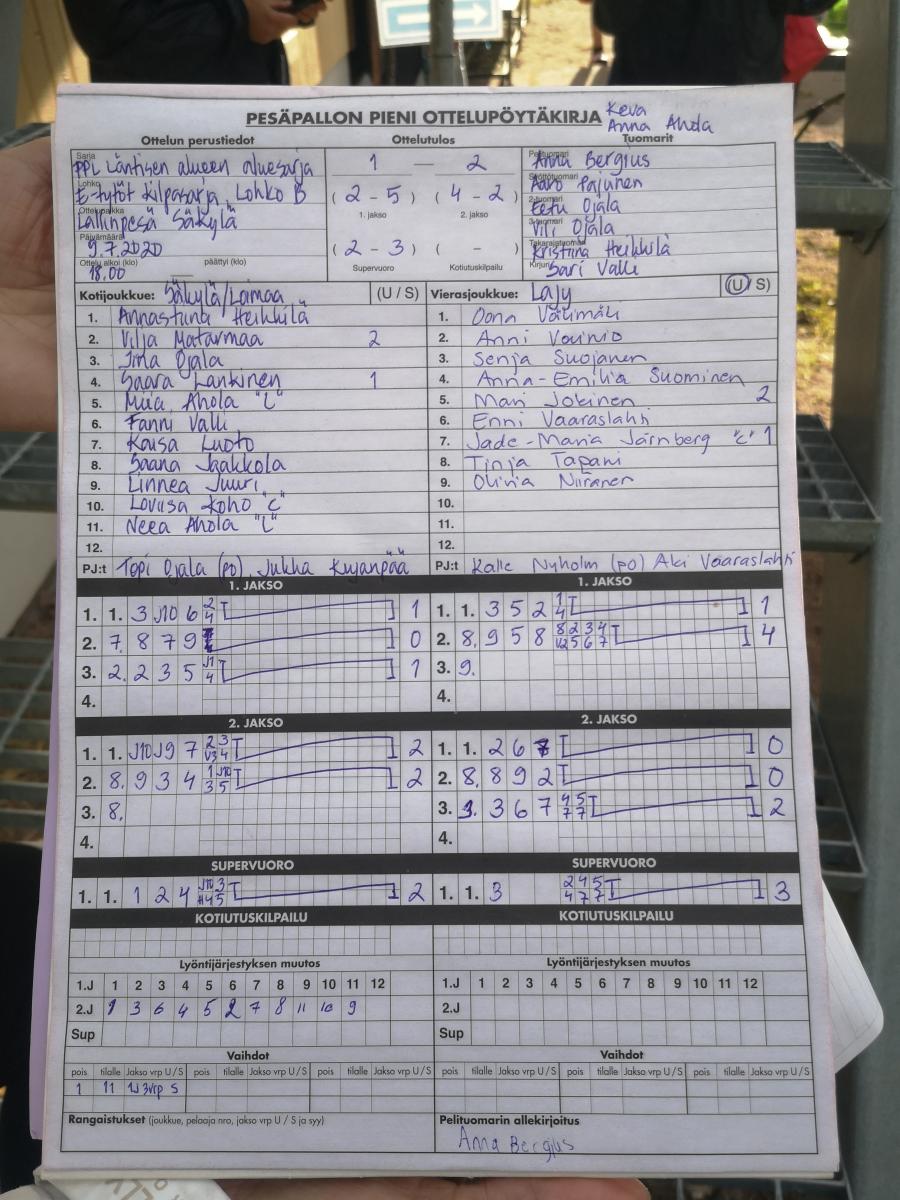 PESÄPALLON PIENI OTTELUPÖYTÄKIRJA
Keva
Anna Ahola
Ottelun perustiedot
Ottelutulos
Tuomarit
Sarja PPL Läntisen alueen aluesarja
Lohko E-tytöt kilpasarja, Lohko B
Ottelupaikka Lallinpesä Säkylä
Päivämäärä 9.7.2020
Ottelu alkoi (klo) 18.00 päättyi (klo)
1 — 2
( 2 - 5 ) ( 4 - 2 )
1. jakso 2. jakso
( 2 - 3 ) ( - )
Supervuoro Kotiutuskilpailu
Pelituomari Anna Bergius
Syöttötuomari Aaro Pajunen
2-tuomari Eetu Ojala
3-tuomari Vili Ojala
Takarajatuomari Kristiina Heikkilä
Kirjuri Sari Valli
Kotijoukkue: Säkylä/Loimaa (U / S)
1. Annastiina Heikkilä
2. Vilja Matarmaa 2
3. Iina Ojala
4. Saara Lankinen 1
5. Miia Ahola "L"
6. Fanni Valli
7. Kaisa Luoto
8. Saana Jaakkola
9. Linnea Juuri
10. Loviisa Koho "C"
11. Neea Ahola "L"
12.
PJ:t Topi Ojala (po) Jukka Kujanpää
Vierasjoukkue: LaJy (U / S)
1. Oona Välimäki
2. Anni Vainio
3. Senja Suojanen
4. Anna-Emilia Suominen
5. Mari Jokinen 2
6. Enni Vaaraslahti
7. Jade-Maria Järnberg "C" 1
8. Tinja Tapani
9. Olivia Niiranen
10.
11.
12.
PJ:t Kalle Nyholm (po) Aki Vaaraslahti
1. JAKSO
1. 1. 3 J10 6 2 4 1
2. 7. 8 7 9 0
3. 2. 2 3 5 J1 4 1
4.
1. JAKSO
1. 1. 3 5 2 1 4 1
2. 8. 9 5 8 8 2 3 4 V2 5 6 7 4
3. 9.
4.
2. JAKSO
1. 1. J10 J9 7 2 3 V3 4 2
2. 8. 9 3 4 1 J10 3 5 2
3. 8.
4.
2. JAKSO
1. 1. 2 6 0
2. 8. 8 9 2 0
3. 1. 3 6 7 4 5 7 7 2
4.
SUPERVUORO
1. 1. 1 2 4 J10 3 4 5 2
SUPERVUORO
1. 1. 3 2 4 5 4 7 7 3
KOTIUTUSKILPAILU
KOTIUTUSKILPAILU
Lyöntijärjestyksen muutos
1.J 1 2 3 4 5 6 7 8 9 10 11 12
2.J 1 3 6 4 5 2 7 8 11 10 9
Sup
Lyöntijärjestyksen muutos
1.J 1 2 3 4 5 6 7 8 9 10 11 12
2.J
Sup
Vaihdot
pois tilalle Jakso vrp U / S pois tilalle Jakso vrp U / S pois tilalle Jakso vrp U / S
1 11 1J 3vrp S
Vaihdot
pois tilalle Jakso vrp U / S pois tilalle Jakso vrp U / S pois tilalle Jakso vrp U / S
Rangaistukset (joukkue, pelaaja nro, jakso vrp U / S ja syy)
Pelituomarin allekirjoitus
Anna Bergius